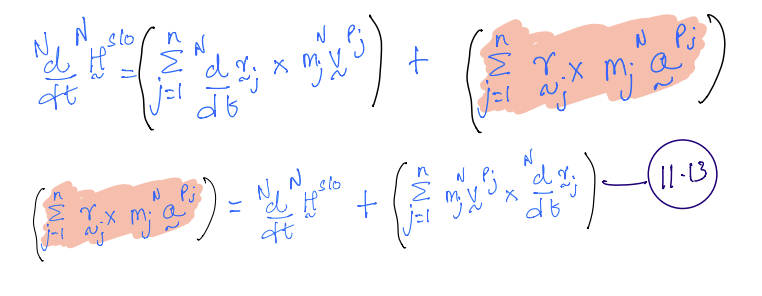 ᴺd/dt ᴺH̰^{S/O} = ( Σ_{j=1}^{n} ᴺd/dt r̰_j × m_j ᴺv̰^{P_j} ) + ( Σ_{j=1}^{n} r̰_j × m_j ᴺa̰^{P_j} )
( Σ_{j=1}^{n} r̰_j × m_j ᴺa̰^{P_j} ) = ᴺd/dt ᴺH̰^{S/O} + ( Σ_{j=1}^{n} m_j ᴺv̰^{P_j} × ᴺd/dt r̰_j ) — 11.13